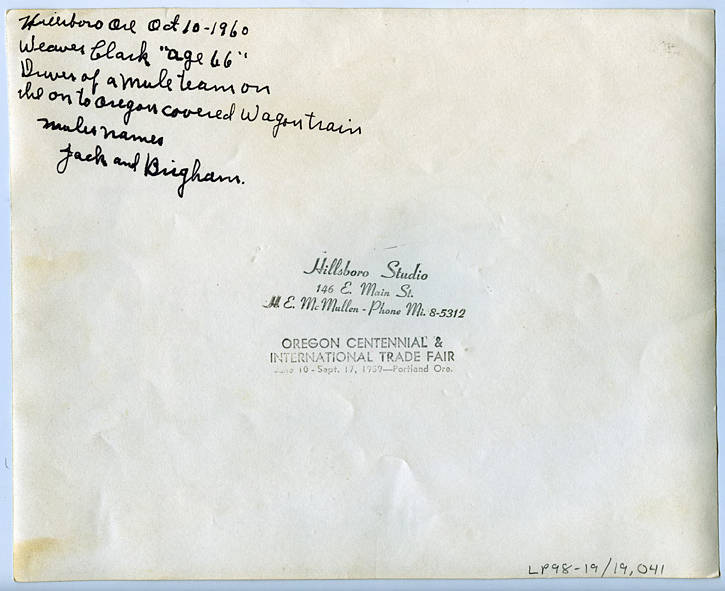 Hillsboro Ore Oct 10-1960
Weaver Clark "age 66"
Driver of a mule team on
the on to Oregon covered Wagon train
mules names
Jack and Brigham.
Hillsboro Studio
146 E. Main St.
H. E. McMullen - Phone Mi. 8-5312
OREGON CENTENNIAL &
INTERNATIONAL TRADE FAIR
June 10 - Sept. 17, 1959—Portland Ore.
LP98-19/19,041